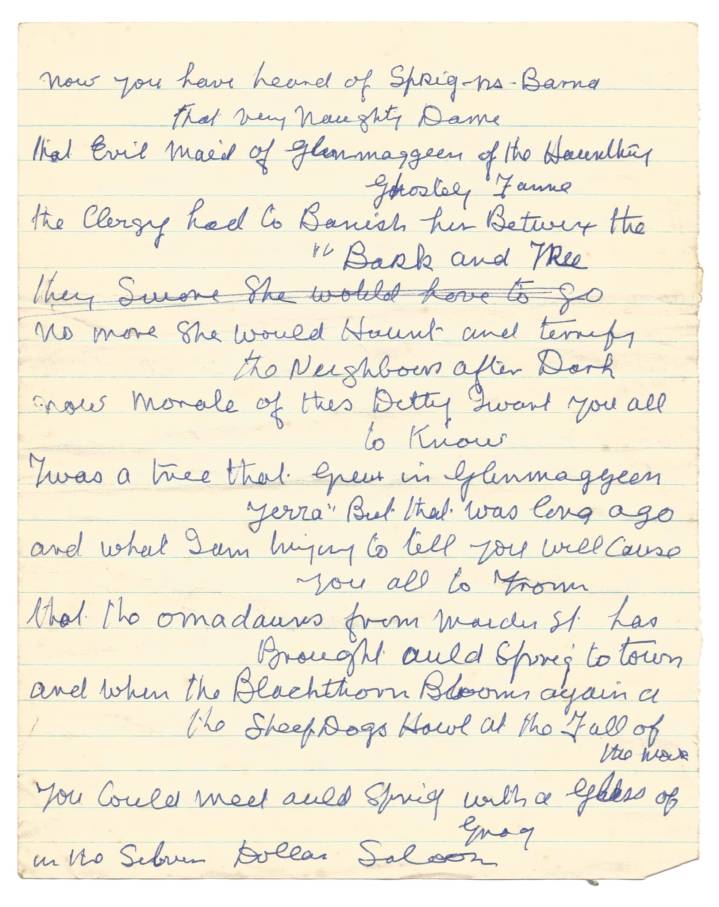 now you have heard of Sprig-na-Barna
that very Naughty Dame
that Evil Maid of Glenmaggeen of the Haunthing
Ghostely Fame
the Clergy had to Banish her Betwix the
" Bark and TRee
they Swore She would have to go
no more She would Haunt and terrify
the Neighbours after Dark
now Morale of this Ditty I want you all
to Know
Twas a tree that Grew in Glenmaggeen
Yerra" But that was long ago
and what I am trying to tell you will Cause
you all to Frown
that the omadauns from Maiden St. has
Brought auld Sprig to town
and when the Blackthorn Blooms again a
the SheepDogs Howl at the Fall of
the
You Could meet auld Sprig with a Glass of
Grog
in the Silver Dollar Saloon